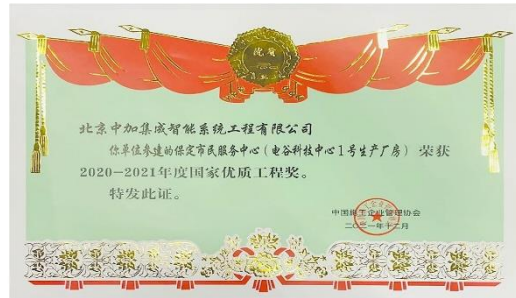 北京中加集成智能系统工程有限公司
你单位参建的保定市民服务中心（电谷科技中心1号生产厂房）荣获
2020-2021年度国家优质工程奖。
特发此证。
中国施工企业管理协会
二〇二一年十二月